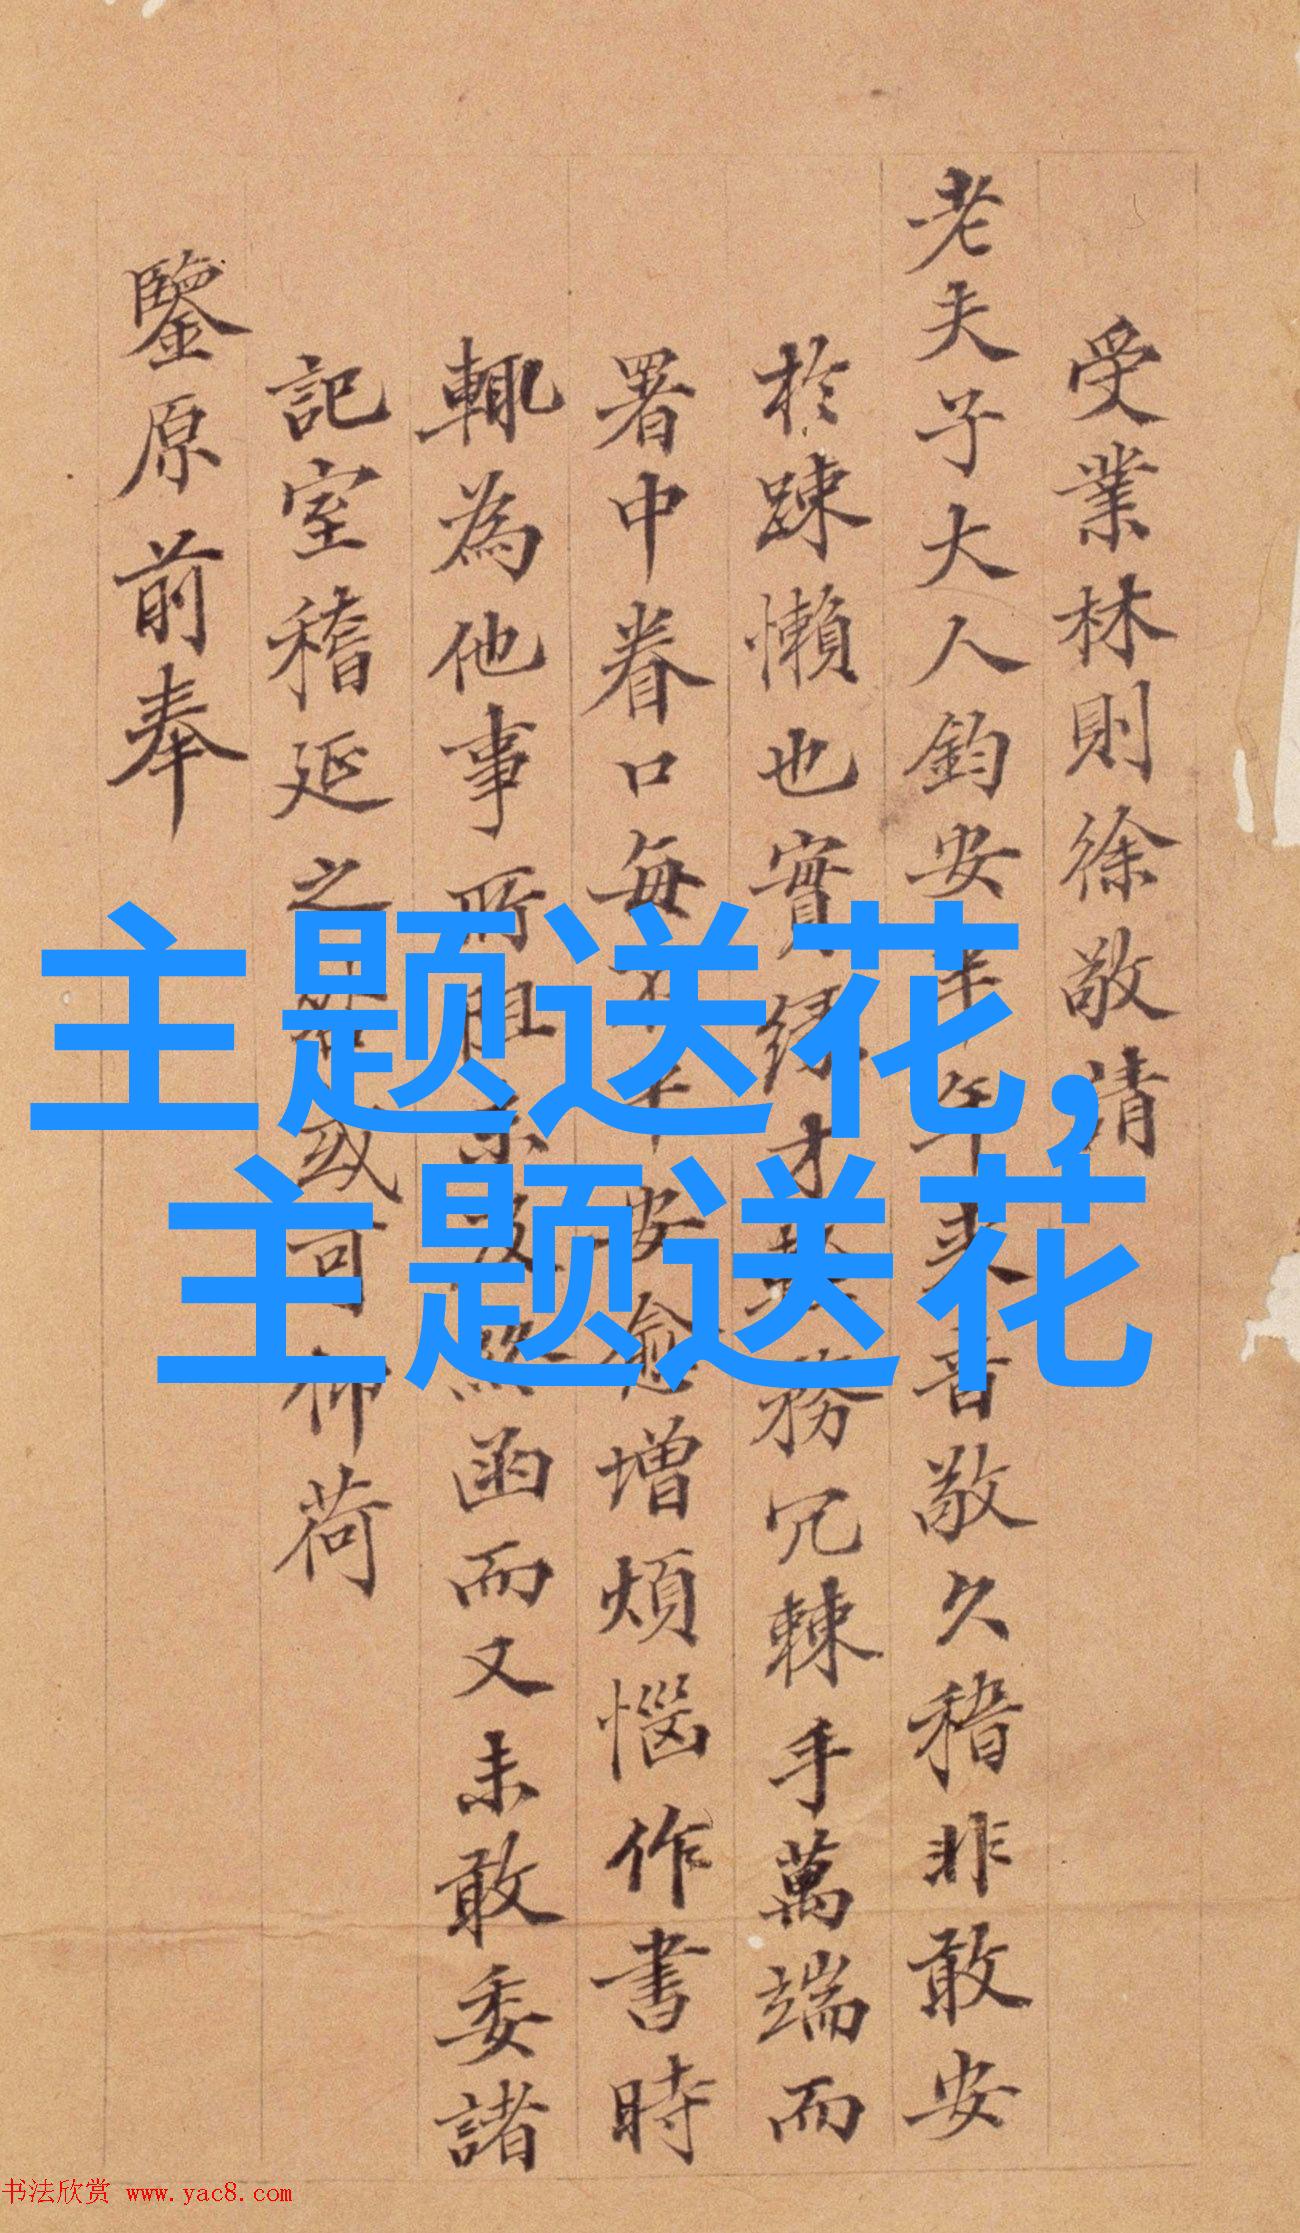 受業林則徐敬請
老夫子大人鈞安半年来音敬久稽非敢安
於踈懶也實緣才務冗棘手萬端而
署中眷口每不安愈增煩惱作書時
輒為他事所阻函而又未敢委諸
記室稽延之或可仰荷
鑒原前奉
主题送花,
主题送花
书法欣赏 www.yac8.com